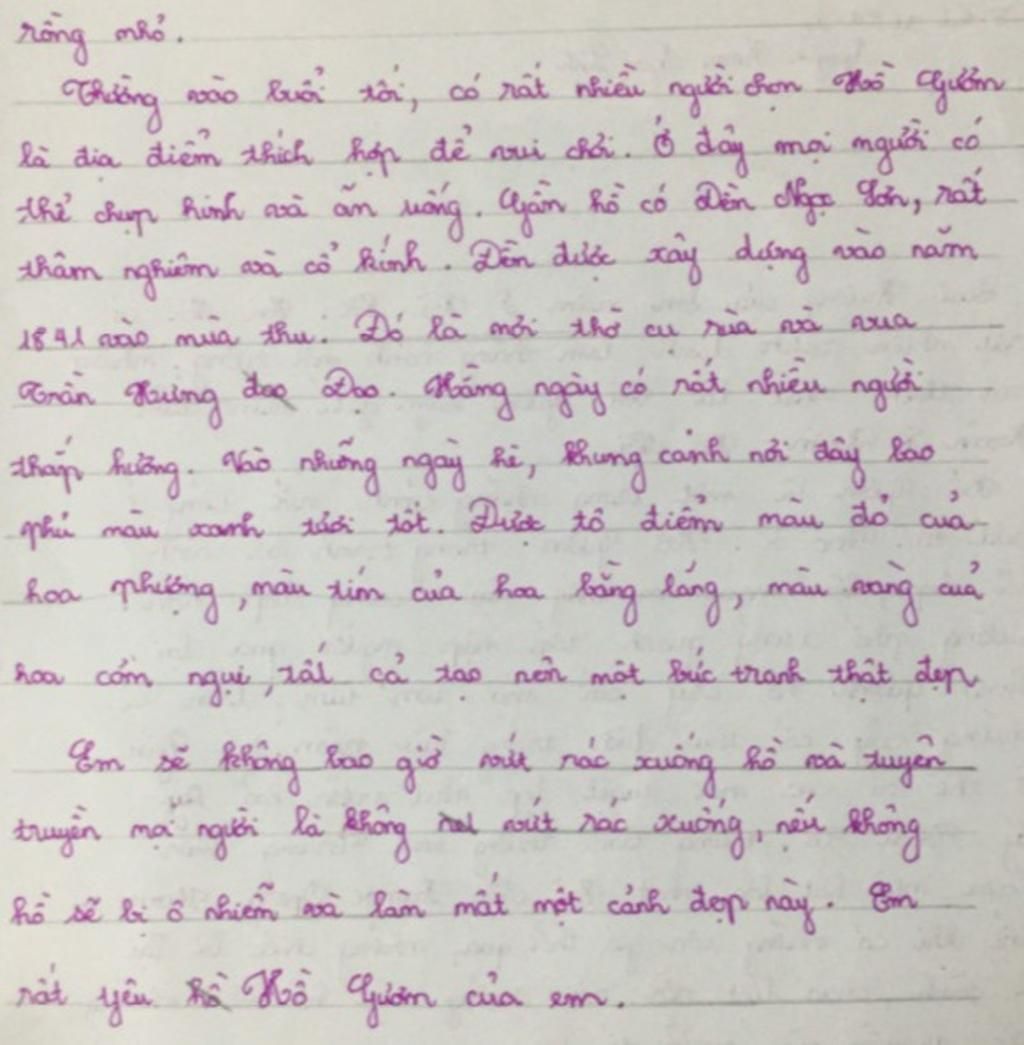 rồng nhỏ.
Thường vào buổi tối, có rất nhiều người chọn Hồ Gươm
là địa điểm thích hợp để vui chơi. Ở đây mọi người có
thể chụp hình và ăn uống. Gần hồ có Đền Ngọc Sơn, rất
thâm nghiêm và cổ kính. Đền được xây dựng vào năm
1841 vào mùa thu. Đó là nơi thờ cụ rùa và vua
Trần Hưng Đạo. Hằng ngày có rất nhiều người
thắp hương. Vào những ngày hè, khung cảnh nơi đây bao
phủ màu xanh tươi tốt. Được tô điểm màu đỏ của
hoa phượng, màu tím của hoa bằng lăng, màu vàng của
hoa cớm ngui, tất cả tạo nên một bức tranh thật đẹp
Em sẽ không bao giờ vứt rác xuống hồ và tuyên
truyền mọi người là không vứt rác xuống, nếu không
hồ sẽ bị ô nhiễm và làm mất một cảnh đẹp này. Em
rất yêu Hồ Gươm của em.